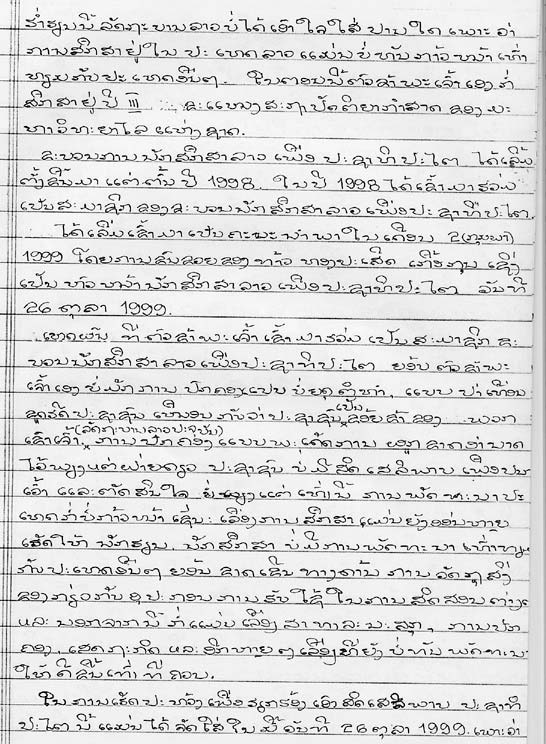 ຮ່ຳຮຽນນີ້ ລັດຖະບານລາວບໍ່ໄດ້ເອົາໃຈໃສ່ປານໃດ ເພາະວ່າ
ການສຶກສາຢູ່ໃນ ປະເທດລາວແມ່ນບໍ່ທັນກ້າວໜ້າເທົ່າ
ທຽມກັບປະເທດອື່ນໆ. ໃນຕອນນີ້ຕົວຂ້າພະເຈົ້າເອງກໍ່
ສຶກສາຢູ່ປີ III ຂະແໜງສະຖາປັດຕິຍາກຳສາດ ຂອງມະ
ຫາວິທະຍາໄລແຫ່ງຊາດ.
ຂະບວນການນັກສຶກສາລາວເພື່ອປະຊາທິປະໄຕ ໄດ້ເລີ້ມ
ຕັ້ງຂຶ້ນມາແຕ່ຕົ້ນປີ 1998. ໃນປີ 1998 ໄດ້ເຂົ້າມາຮ່ວມ
ເປັນສະມາຊິກຂອງຂະບວນນັກສຶກສາລາວເພື່ອປະຊາທິປະໄຕ.
ໄດ້ເລີ່ມເຂົ້າມາເປັນຄະນະນຳພາໃນເດືອນ 2(ກຸມພາ)
1999 ໂດຍການຊົນຊອຍຂອງທ້າວ ທອງປະເສີດ ເກື້ອກຸນ ເຊິ່ງ
ເປັນຫົວໜ້ານັກສຶກສາລາວເພື່ອປະຊາທິປະໄຕ ວັນທີ
26 ຕຸລາ 1999.
ເຫດຜົນ ທີ່ຕົວຂ້າພະເຈົ້າເຂົ້າມາຮ່ວມ ເປັນສະມາຊິກຂະ
ບວນນັກສຶກສາລາວເພື່ອປະຊາທິປະໄຕ ຍ້ອນຕົວຂ້າພະ
ເຈົ້າເອງບໍ່ມັກການປົກຄອງແບບບໍ່ຍຸດຕິທຳ, ແບບປ່າເຖື່ອນ
ຂູດຮີດປະຊາຊົນ ເໝືອນກັບວ່າປະຊາຊົນເປັນຂ້ອຍຂ້າຂອງ ພວກ
ເຂົາເຈົ້າ(ລັດຖະບານລາວປະຈຸບັນ), ການປົກຄອງແບບພະເດັດການ ຜູກຂາດອຳນາດ
ໄວ້ພຽງແຕ່ຝ່າຍດຽວ ປະຊາຊົນ ບໍ່ມີສິດເສລີພາບ ເພື່ອເປັນ
ເຈົ້າ ແລະຕັດສິນໃຈ ບໍ່ພຽງແຕ່ເທົ່ານີ້ ການພັດທະນາປະ
ເທດກໍ່ບໍ່ກ້າວໜ້າ ເຊັ່ນ: ເລື່ອງການສຶກສາແມ່ນຍັງອ່ອນຫລາຍ
ເຮັດໃຫ້ ນັກຮຽນ, ນັກສຶກສາ ບໍ່ມີການພັດທະນາເທົ່າທຽມ
ກັບປະເທດອື່ນໆ ຍ້ອນຂາດເຂີນທາງດ້ານ ການຈັດຫາສິ່ງ
ຂອງກ່ຽວກັບອຸປະກອນການຮັບໃຊ້ໃນການສິດສອນຕ່າງໆ
ແລະ ນອກຈາກນີ້ກໍ່ແມ່ນເລື່ອງສາທາລະນະສຸກ, ການປົກ
ຄອງ, ເສດຖະກິດ ແລະ ອີກຫລາຍໆເລື່ອງທີ່ຍັງບໍ່ທັນພັດທະນາ
ໃຫ້ດີຂຶ້ນເທື່ອທີ່ຄວນ.
ໃນການເຮັດປະທ້ວງເພື່ອຮຽກຮ້ອງເອົາສິດເສລີພາບ ປະຊາທິ
ປະໄຕນີ້ແມ່ນໄດ້ຈັດໃສ່ໃນມື້ວັນທີ 26 ຕຸລາ 1999. ເພາະວ່າ